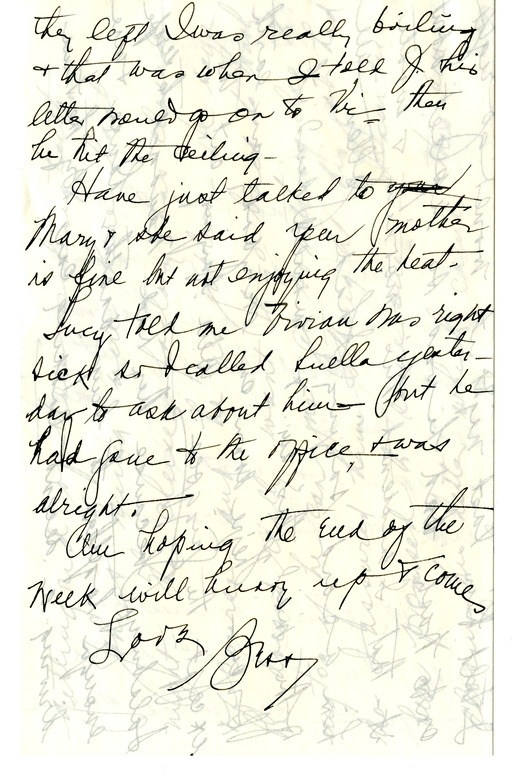 they left I was really boiling
+ that was when I told J. his
letter would go on to Vic- then
he hit the ceiling-
Have just talked to your
Mary + she said your mother
is fine but not enjoying the heat-
Lucy told me Vivian was right
sick so I called Luella yester-
day to ask about him- but he
had gone to the office, + was
alright.
Am hoping the end of the
week will hurry up + comes
Love